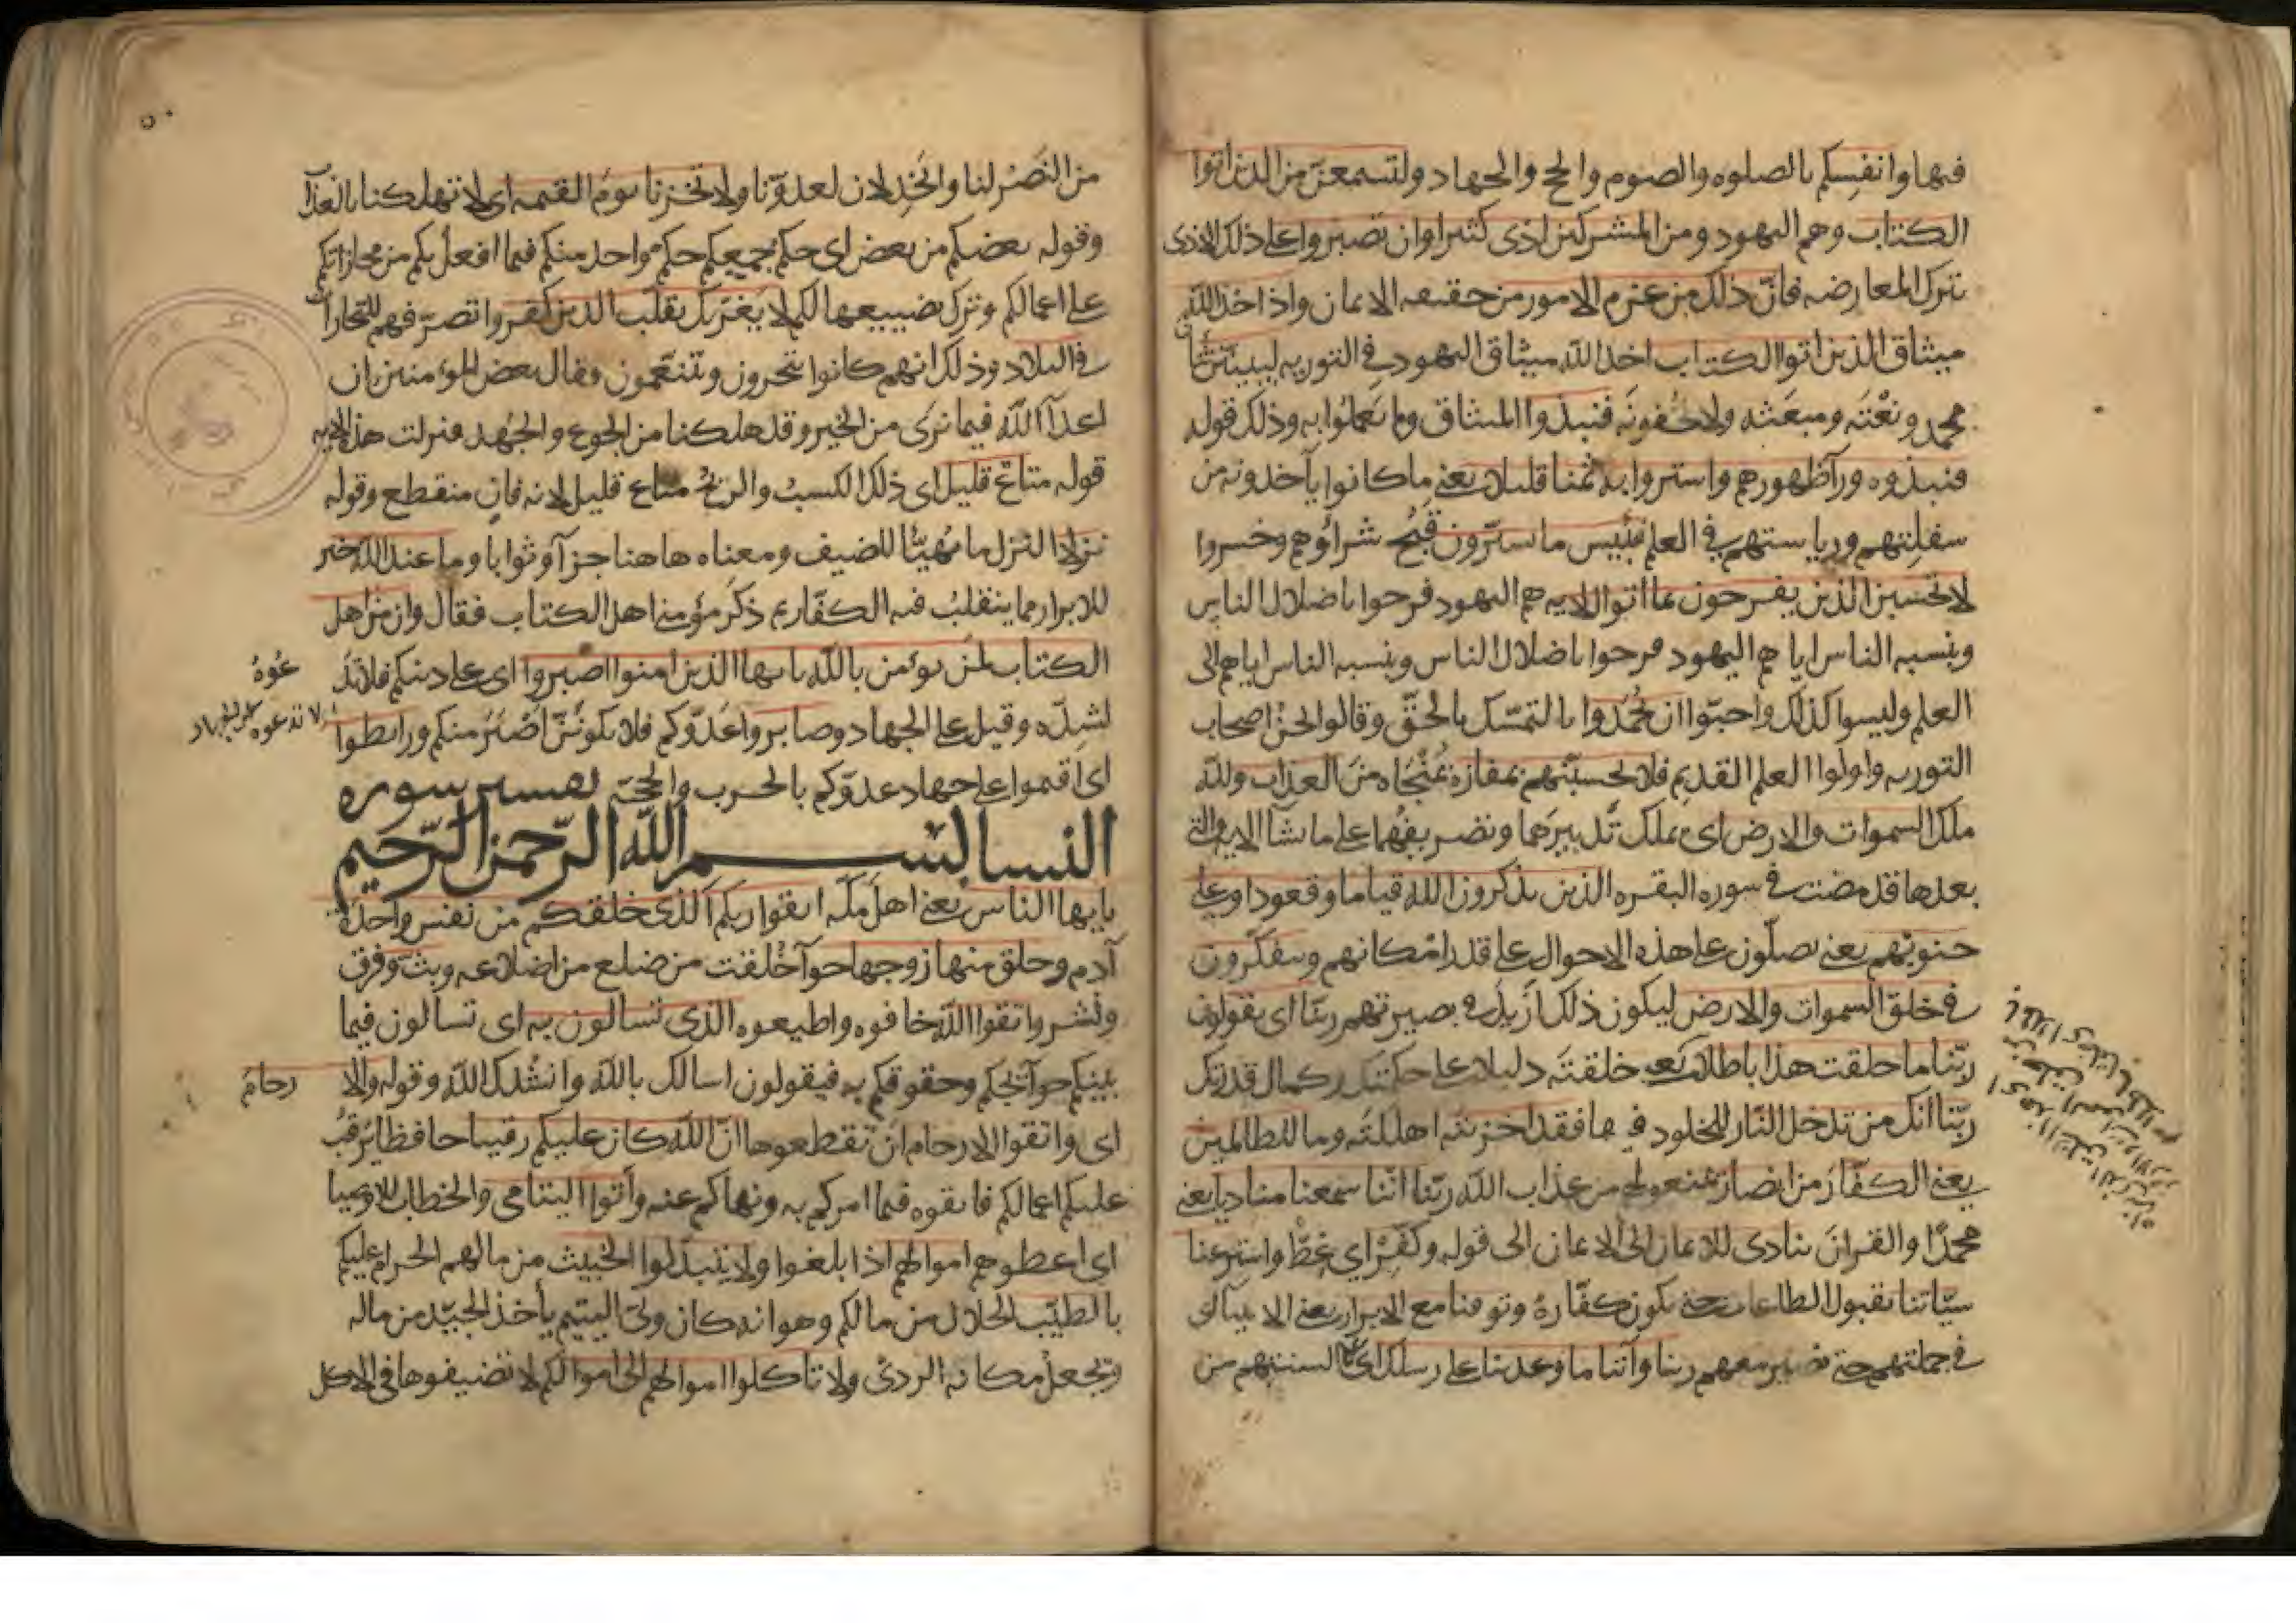 فيها وانفسكم بالصلوه والصوم والحج والجهاد ولتسمعن من الذين اتوا
الكتاب وهم اليهود ومن المشركين اذى كثيرا وان تصبروا على ذلك الاذى
بترك المعارضه فانّ ذلك من عزم الامور من حقيقه الايمان واذ اخذ الله
ميثاق الذين اتوا الكتاب اخذ الله ميثاق اليهود في التوريه ليبيننّ شان
محمد ونعْتَه ومبعَثه ولا يخفونَه فنبذوا الميثاق ولم يَعملُوا به وذلك قوله
فنبذوه ورآ ظهورهم واشتروا به ثمنا قليلا يعنى ما كانوا يأخذونه من
سفلتهم ورياستهم في العلم فبئيس ما يشترون قبُح شراؤهم وخسروا
لا تحسبن الذين يفرحون بما اتوا الايه هم اليهود فرحوا باضلال الناس
وبنسبه الناس اياهم اليهود فرحوا باضلال الناس وبنسبه الناس اياهم الى
العلم وليسوا كذلك واحبّوا ان يُحمَدوا بالتمسّك بالحقّ وقالوا نحنُ اصحاب
التوريه واولوا العلم القديم فلا تحسبنّهم بمفازه بمُنْجَاه من العذاب ولله
ملك السموات والارض اى يملك تَدبيرَهما وتصريفهما على ما يشآ الايه والتى
بعدها قد مضت في سوره البقره الذين يذكرون الله قياما وقعودا وعلى
جنوبهم يعنى يصلّون على هذه الاحوال على قدر امكانهم ويتفكّرون
في خلق السموات والارض ليكون ذلك ازْيد في بصيرتهم ربّنا اى يقولون
ربّنا ما خلقت هذا باطلا يعنى خلقتَه دليلا على حكمتك وكمال قدرتك
ربّنا انك من تدخل النّار للخلود فيها فقد اخزيته اهلكتَه وما للظالمين
يعنى الكفّارَ من انصار يمنعونهم من عذاب الله ربّنا اننا سمعنا مناديا يعنى
محمدًا والقرانَ ينادى للايمان الى الايمان الى قوله وكفّرْ اى غطّ واستر عنا
سيّاتنا بقبول الطاعات حتى يكون كفّارهً وتوفنا مع الابرار يعنى الانبيآ اى
في جملتهم حتى نصير معهم ربنا وآتنا ما وعدتنا على رسلك اى على السنتهم من
من النَصْر لنا والخِذلان لعدوّنا ولا تخزنا يومَ القيمه اى لا تهلكنا بالعذاب
وقوله بعضكم من بعض اى حكم جميعكم حكم واحد منكم فيما افعل بكم من مجازاتكم
على اعمالكم وترك تضييعها لكم لا يَغرّنك تقلّب الذين كفروا تصرّفهم للتجارات
في البلاد وذلك انهم كانوا يتّجرون ويتنعّمون وقال بعض المؤمنين ان
اعدآ الله فيما نرى من الخير وقد هلكنا من الجوع والجَهد فنزلت هذه الايه
قوله متاعٌ قليل اى ذلك الكسبُ والربحُ متاع قليل لانه فانٍ منقطع وقوله
نزلا النزل ما يُهيّأ للضيف ومعناه هاهنا جزآ وثوابا وما عند الله خير
للابرار مما ينقلبُ فيه الكفّار ثم ذكرَ مؤمنى اهل الكتاب فقال وان من اهل
الكتاب لمن يؤمن بالله يا ايها الذين امنوا اصبروا اى على دينكم فلا تدَ
عُوهُ
لشدّه وقيل على الجهاد وصابروا عدوّكم فلا يكونَنّ اصْبرَ منكم ورابطوا
اى اقيموا على جهاد عدوّكم بالحرب والحجّه تفسير سوره
النسا بسم الله الرّحمن الرّحيم
يا ايها الناس يعنى اهل مكّه اتقوا ربكم الذى خلقكم من نفس واحدة
آدم وخلق منها زوجها حوآ خُلقت من ضلع من اضلاعه وبثّ وفرق
ونشر واتقوا الله خافوه واطيعوه الذى تسالون به اى تسالون فيما
بينكم حوآئجكم وحقوقكم به فيقولون اسالك بالله وانشُدك الله وقوله والا
رحامَ
اى واتقوا الارحام انْ تقطعوها انّ الله كان عليكم رقيبا حافظا يرقبُ
عليكم اعمالكم فاتقوه فيما امركم به ونهاكم عنه وآتوا اليتامى والخطاب للاوصيا
اى اعطوهم اموالهم اذا بلغوا ولا تتبدّلوا الخبيث من مالهم الحرام عليكم
بالطيّب الحلال من مالكم وهو انه كان ولىّ اليتيم يأخذ الجيّد من ماله
ويجعلُ مكانه الردئ ولا تأكلوا اموالهم الى اموالكم لا تضيفوها فى الاكل